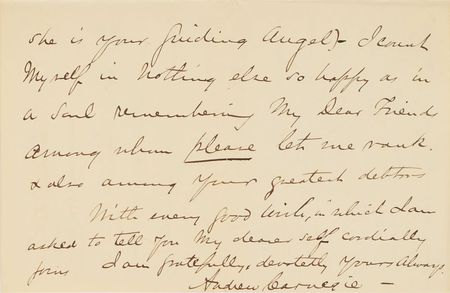 she is your guiding Angel) - I count
Myself in nothing else so happy as in
a Soul remembering My Dear Friends
among whom please let me rank.
& also among your greatest debtors
With every good wish, in which I am
asked to tell you My dearer self cordially
joins I am gratefully, devotedly Yours Always,
Andrew Carnegie -